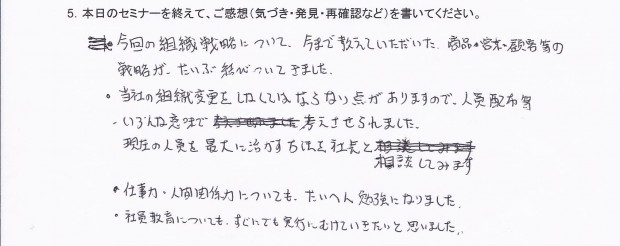 5. 本日のセミナーを終えて、ご感想(気づき・発見・再確認など)を書いてください。
・今回の組織戦略について、今まで教えていただいた、商品・営業・顧客等の
戦略が、だいぶ結びついてきました。
・当社の組織変更をしなくてはならない点がありますので、人員配布等
いろんな意味で考えさせられました。
現在の人員を最大に活かす方法を社長と
相談してみます
・仕事力・人間関係力についても、たいへん勉強になりました。
・社員教育についても、すぐにでも実行にむけていきたいと思いました。